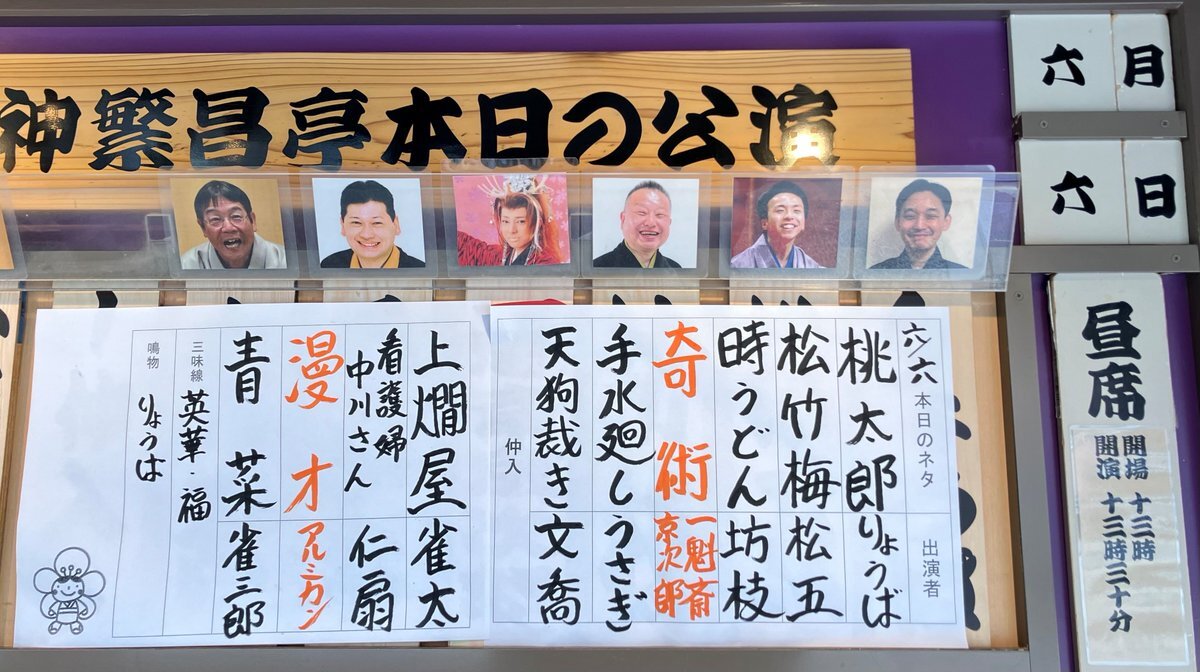 神繁昌亭本日の公演
六月
六日
昼席
開場 十三時
開演 十三時三十分
六/六 本日のネタ 出演者
桃太郎 りょうば
松竹梅 松五
時うどん 坊枝
奇術 一魁斎京次郎
手水廻し うさぎ
天狗裁き 文喬
仲入
上燗屋 雀太
看護婦中川さん 仁扇
漫才 アルミカン
青菜 雀三郎
三味線 英華・福
鳴物 りょうば